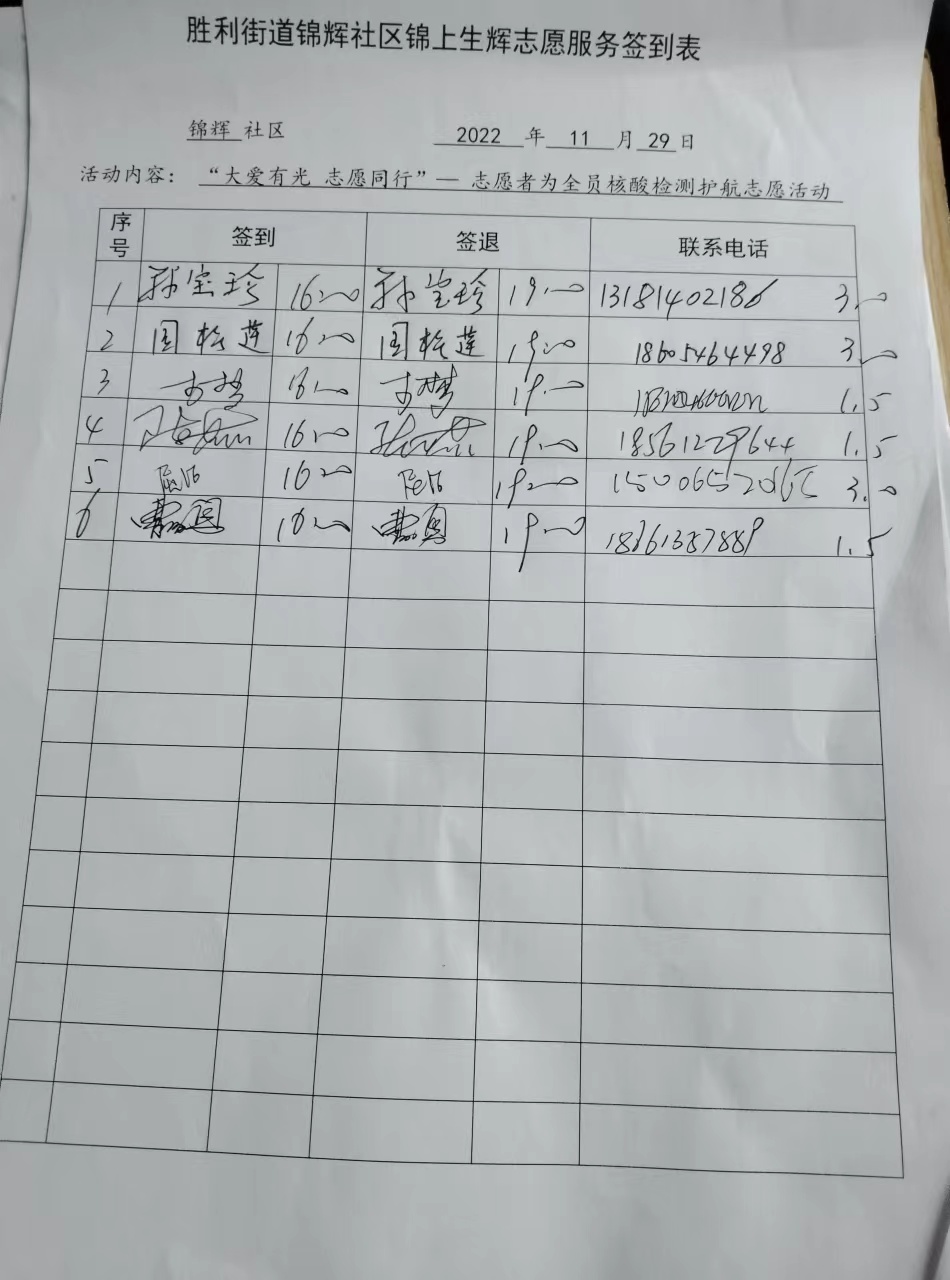 胜利街道锦辉社区锦上生辉志愿服务签到表
锦辉 社区 2022 年 11 月 29 日
活动内容： “大爱有光 志愿同行”— 志愿者为全员核酸检测护航志愿活动
序号 签到 签退 联系电话
1 孙宝珍 16:00 孙宝珍 19:00 13181402186 3.0
2 国松莲 16:00 国松莲 19:00 18605464498 3.0
3 16:00 19:00 1.5
4 16:00 19:00 18561229644 1.5
5 16:00 19:00 3.0
6 16:00 19:00 1.5